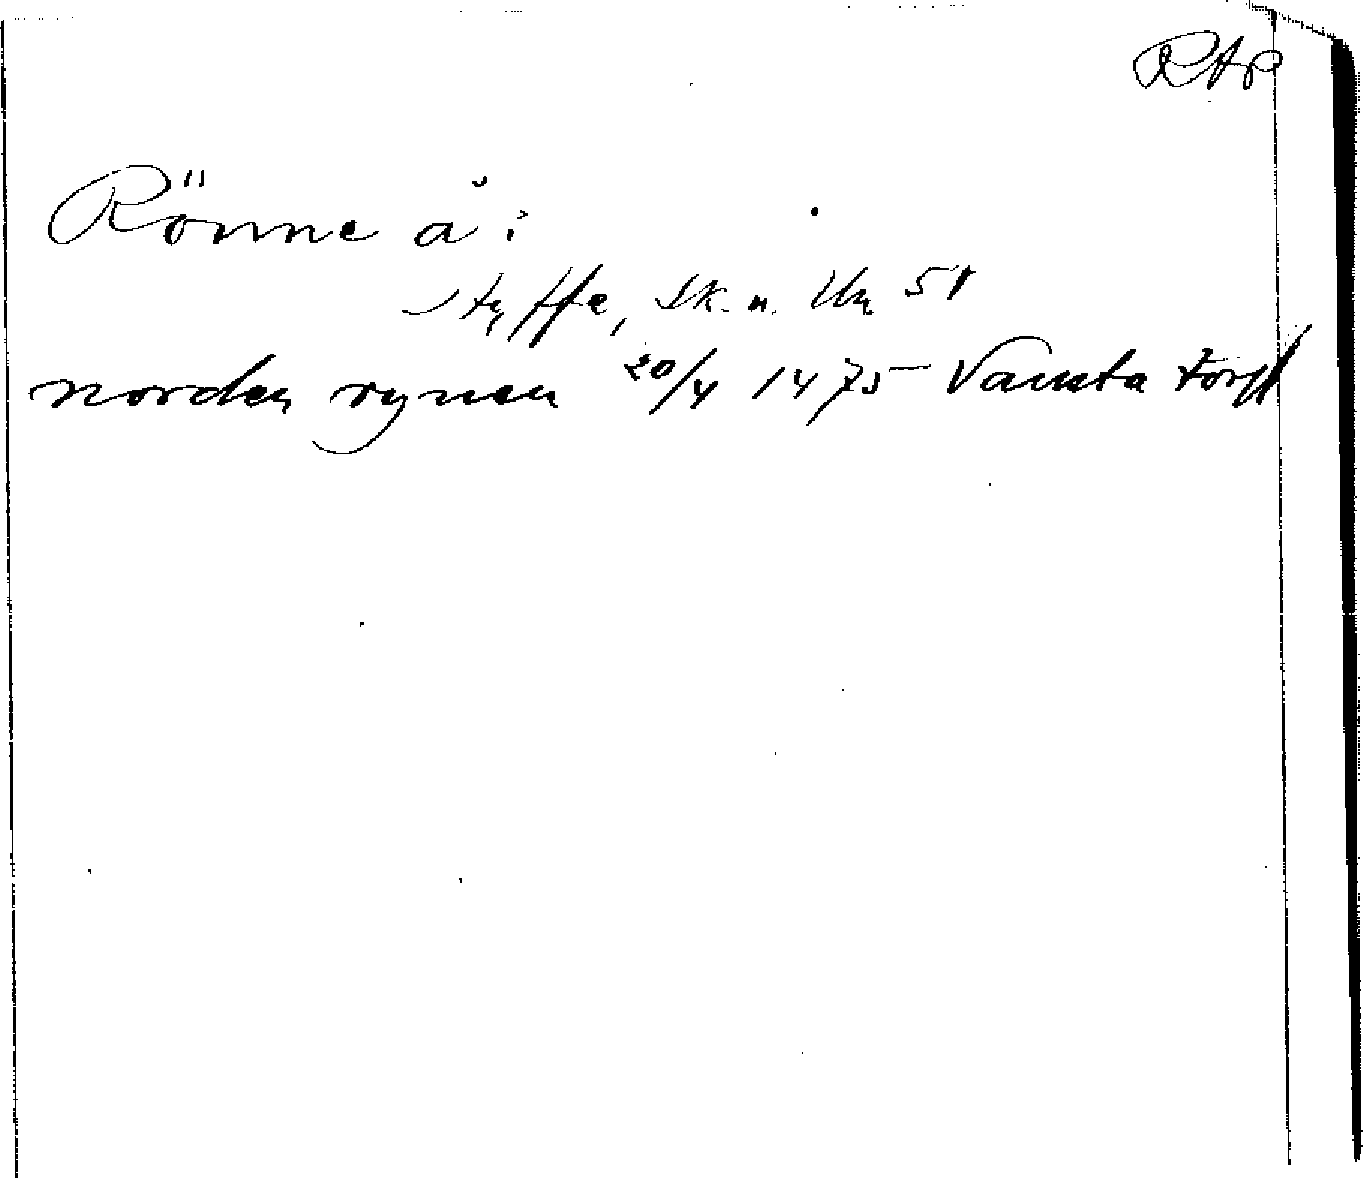 RAp
Rönne å:
Styffe, Sk. u. Un 51
norden rynen 20/4 1475 Vansta